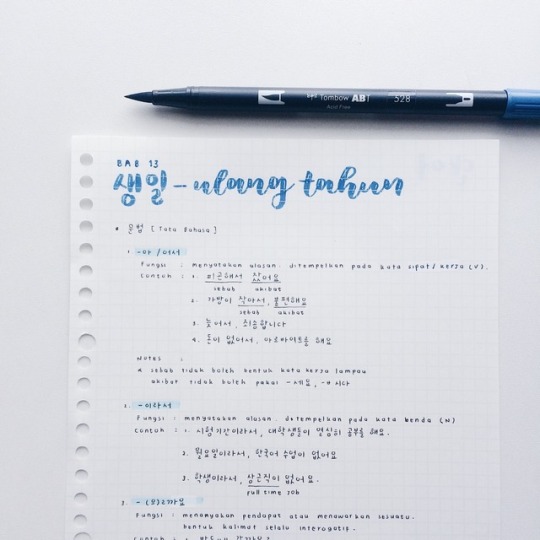 Tombow ABT 528
Acid Free
BAB 13
생일 - ulang tahun
* 문법 [Tata Bahasa]
1. -아/어서
Fungsi : menyatakan alasan. ditempelkan pada kata sifat/kerja (V).
Contoh : 1. 피곤해서 잤어요
sebab akibat
2. 가방이 작아서, 불편해요
sebab akibat
3. 늦어서, 죄송합니다
4. 돈이 없어서, 아르바이트를 해요
Notes :
* sebab tidak boleh bentuk kata kerja lampau
akibat tidak boleh pakai -세요, -ㅂ시다
2. -이라서
Fungsi : menyatakan alasan. ditempelkan pada kata benda (N)
Contoh : 1. 시험기간이라서, 대학생들이 열심히 공부를 해요.
2. 월요일이라서, 한국어 수업이 없어요
3. 학생이라서, 상근직이 없어요.
full time job
3. -(으)ㄹ까요
Fungsi : menanyakan pendapat atau menawarkan sesuatu.
bentuk kalimat selalu interogatif.